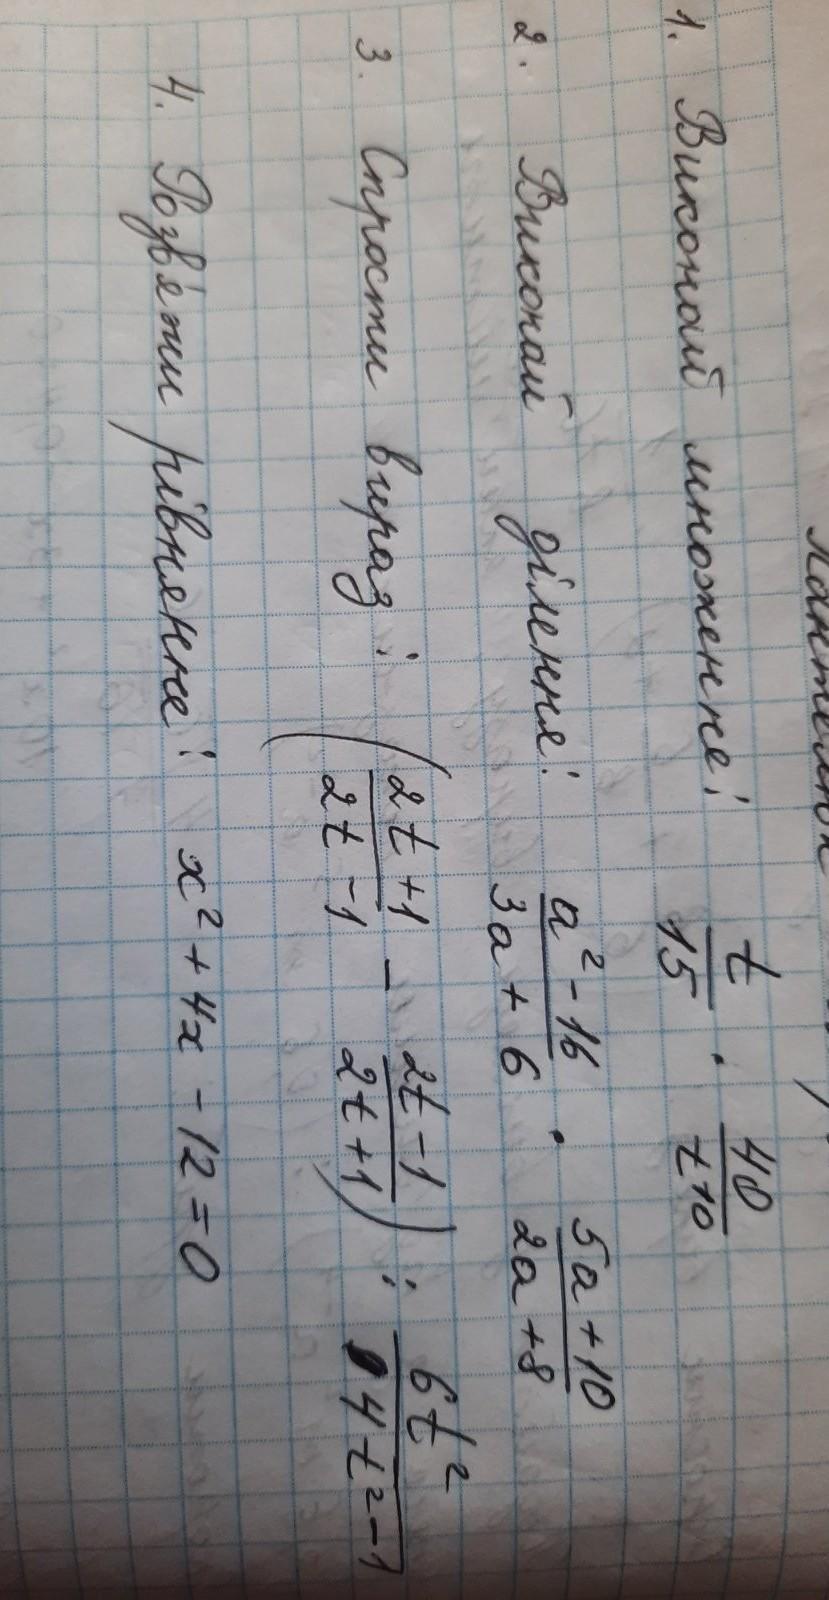 1. Виконай множення: t/15 · 40/t¹⁰
2. Виконай ділення: (a² - 16)/(3a + 6) · (5a + 10)/(2a + 8)
3. Спрости вираз: ((2t + 1)/(2t - 1) - (2t - 1)/(2t + 1)) : 6t²/(4t² - 1)
4. Розв'яжи рівняння: x² + 4x - 12 = 0